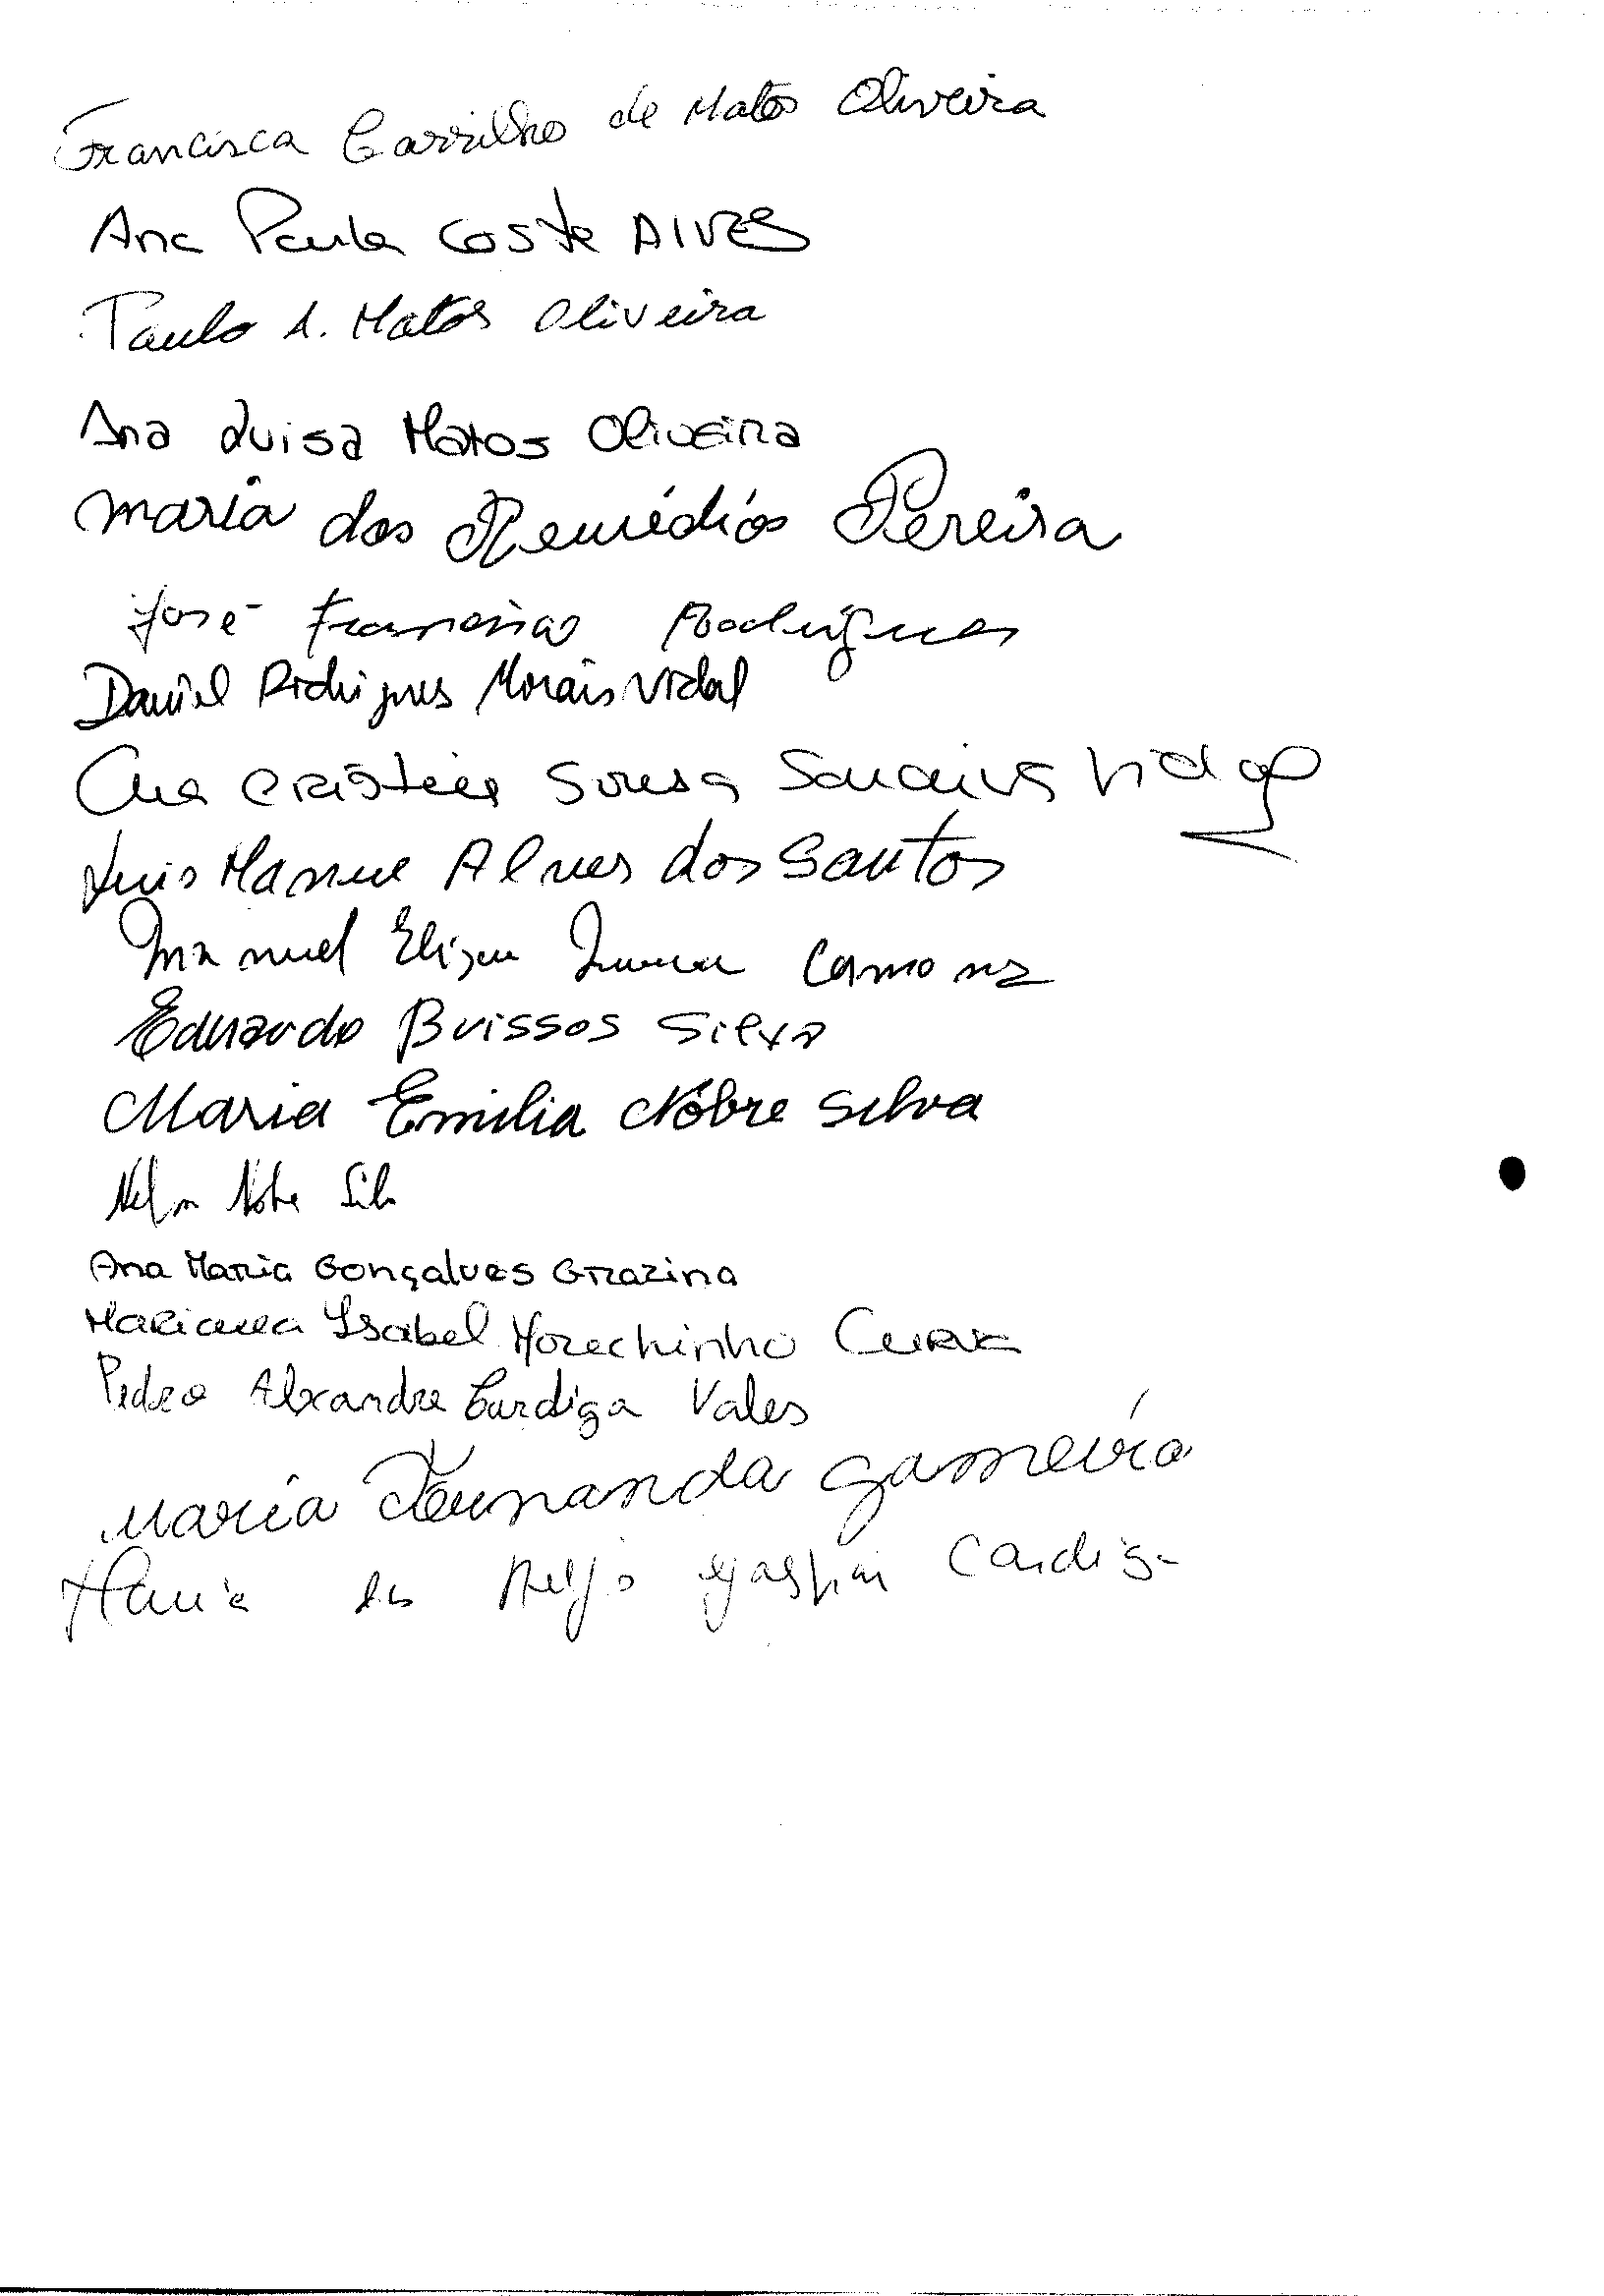 Francisca Carrilho de Matos Oliveira
Ana Paula Costa Alves
Paulo A. Matos Oliveira
Ana Luisa Matos Oliveira
Maria dos Remédios Pereira
José Francisco Rodrigues
Daniel Rodrigues Morais Vidal
Ana Cristina Sousa Saraiva Vidal
Luis Manuel Alves dos Santos
Manuel
Eduardo Buissos Silva
Maria Emilia Nobre Silva
Nelson Nobre Silva
Ana Maria Gonçalves Grazina
Mariana Isabel Morechinho
Pedro Alexandre Cardiga Vales
Maria Fernanda Gameiro
Maria Gaspar Cardiga